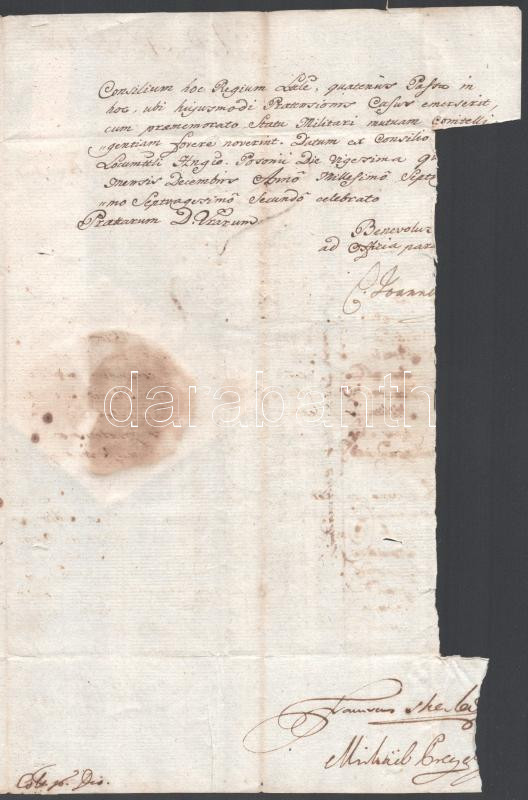 Consilium hoc Regium Lale, quatenus Passu in
hoc, ubi hujusmodi Praetensionis Casus emerserit,
cum praememorato Statu Militari mutuam Comitelli
gentiam fovere noverint. Datum ex Consilio
Locumtli Anglo. Posonii Die Vigesima
mensis Decembris Anno Millesimo Septi
mo Septuagesimo Secundo celebrato
Praettarum D. Vrarum
Benevolus
ad Officia para
C. Joanne
darabanth
Franciscus
Michaël